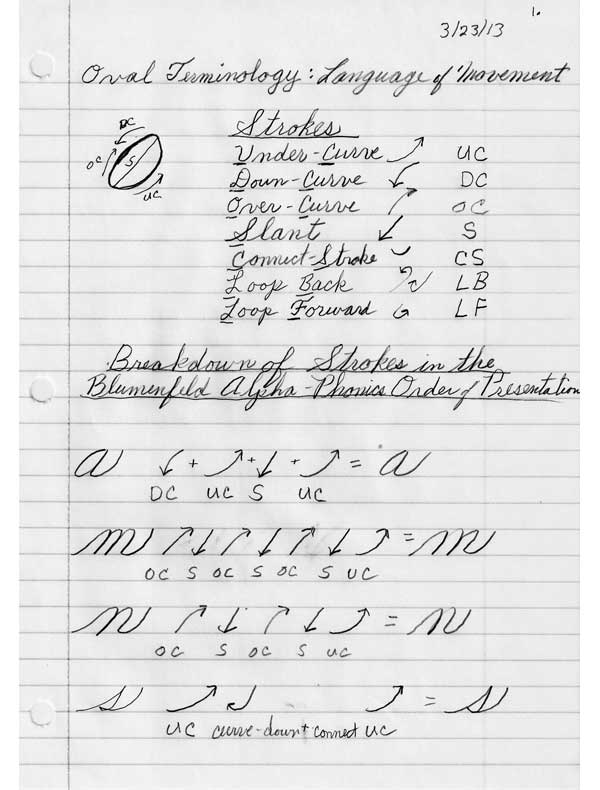 1.
3/23/13
Oval Terminology: Language of Movement
Strokes
DC
OC S
UC
Under-Curve UC
Down-Curve DC
Over-Curve OC
Slant S
Connect-Stroke CS
Loop Back LB
Loop Forward LF
Breakdown of Strokes in the
Blumenfeld Alpha-Phonics Order of Presentation
a + + + = a
DC UC S UC
m = m
OC S OC S OC S UC
n = n
OC S OC S UC
s = s
UC curve-down + connect UC